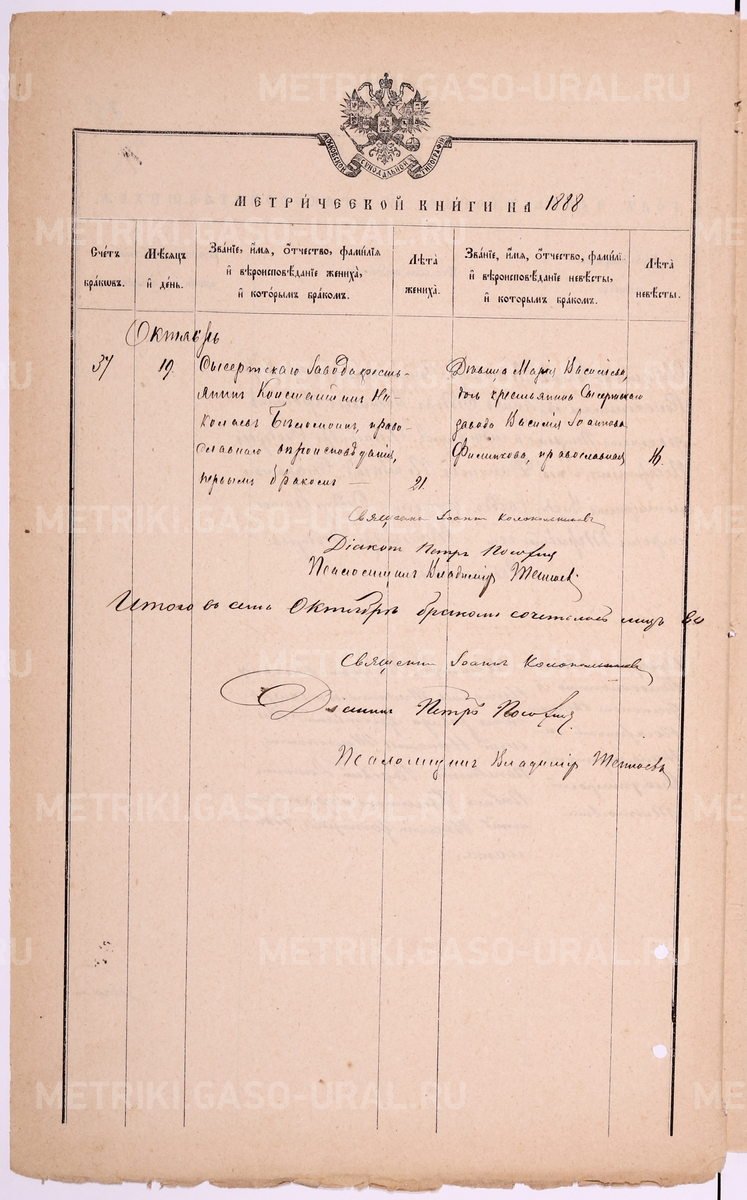 METRIKI.GASO-URAL.RU
МОСКОВСКОЙ СѴНОДАЛЬНОЙ ТИПОГРАФІИ
МЕТРИ́ЧЕСКОЙ КНИ́ГИ НА 1888
Сче́тъ бра́кωвъ.
Мѣ́сяцъ и҆ де́нь.
Зва́нїе, и҆́мя, ѻ҆́тчество, фами́лїя
и҆ вѣроисповѣ́данїе жениха̀,
и҆ кото́рымъ бра́комъ.
Лѣ̑та
жениха̀.
Зва́нїе, и҆́мя, ѻ҆́тчество, фами́лї
и҆ вѣроисповѣ́данїе невѣ́сты,
и҆ которымъ бра́комъ.
Лѣ̑та
невѣ́сты.
Октябрь
37 19. Сысертскаго Завода кресть-
янинъ Константинъ Ни-
колаевъ, право-
славнаго вѣроисповѣданія,
первымъ бракомъ — 21.
Дѣвица Марія Василіева,
дочь крестьянина Сысертскаго
завода Василія Іоаннова
православная 16.
Священ. Іоаннъ Колокольниковъ
Діаконъ Петръ
Псаломщикъ Владиміръ
Итого въ семъ Октябрѣ бракомъ сочеталось лицъ
Священникъ Іоаннъ Колокольниковъ
Діаконъ Петръ
Псаломщикъ Владиміръ